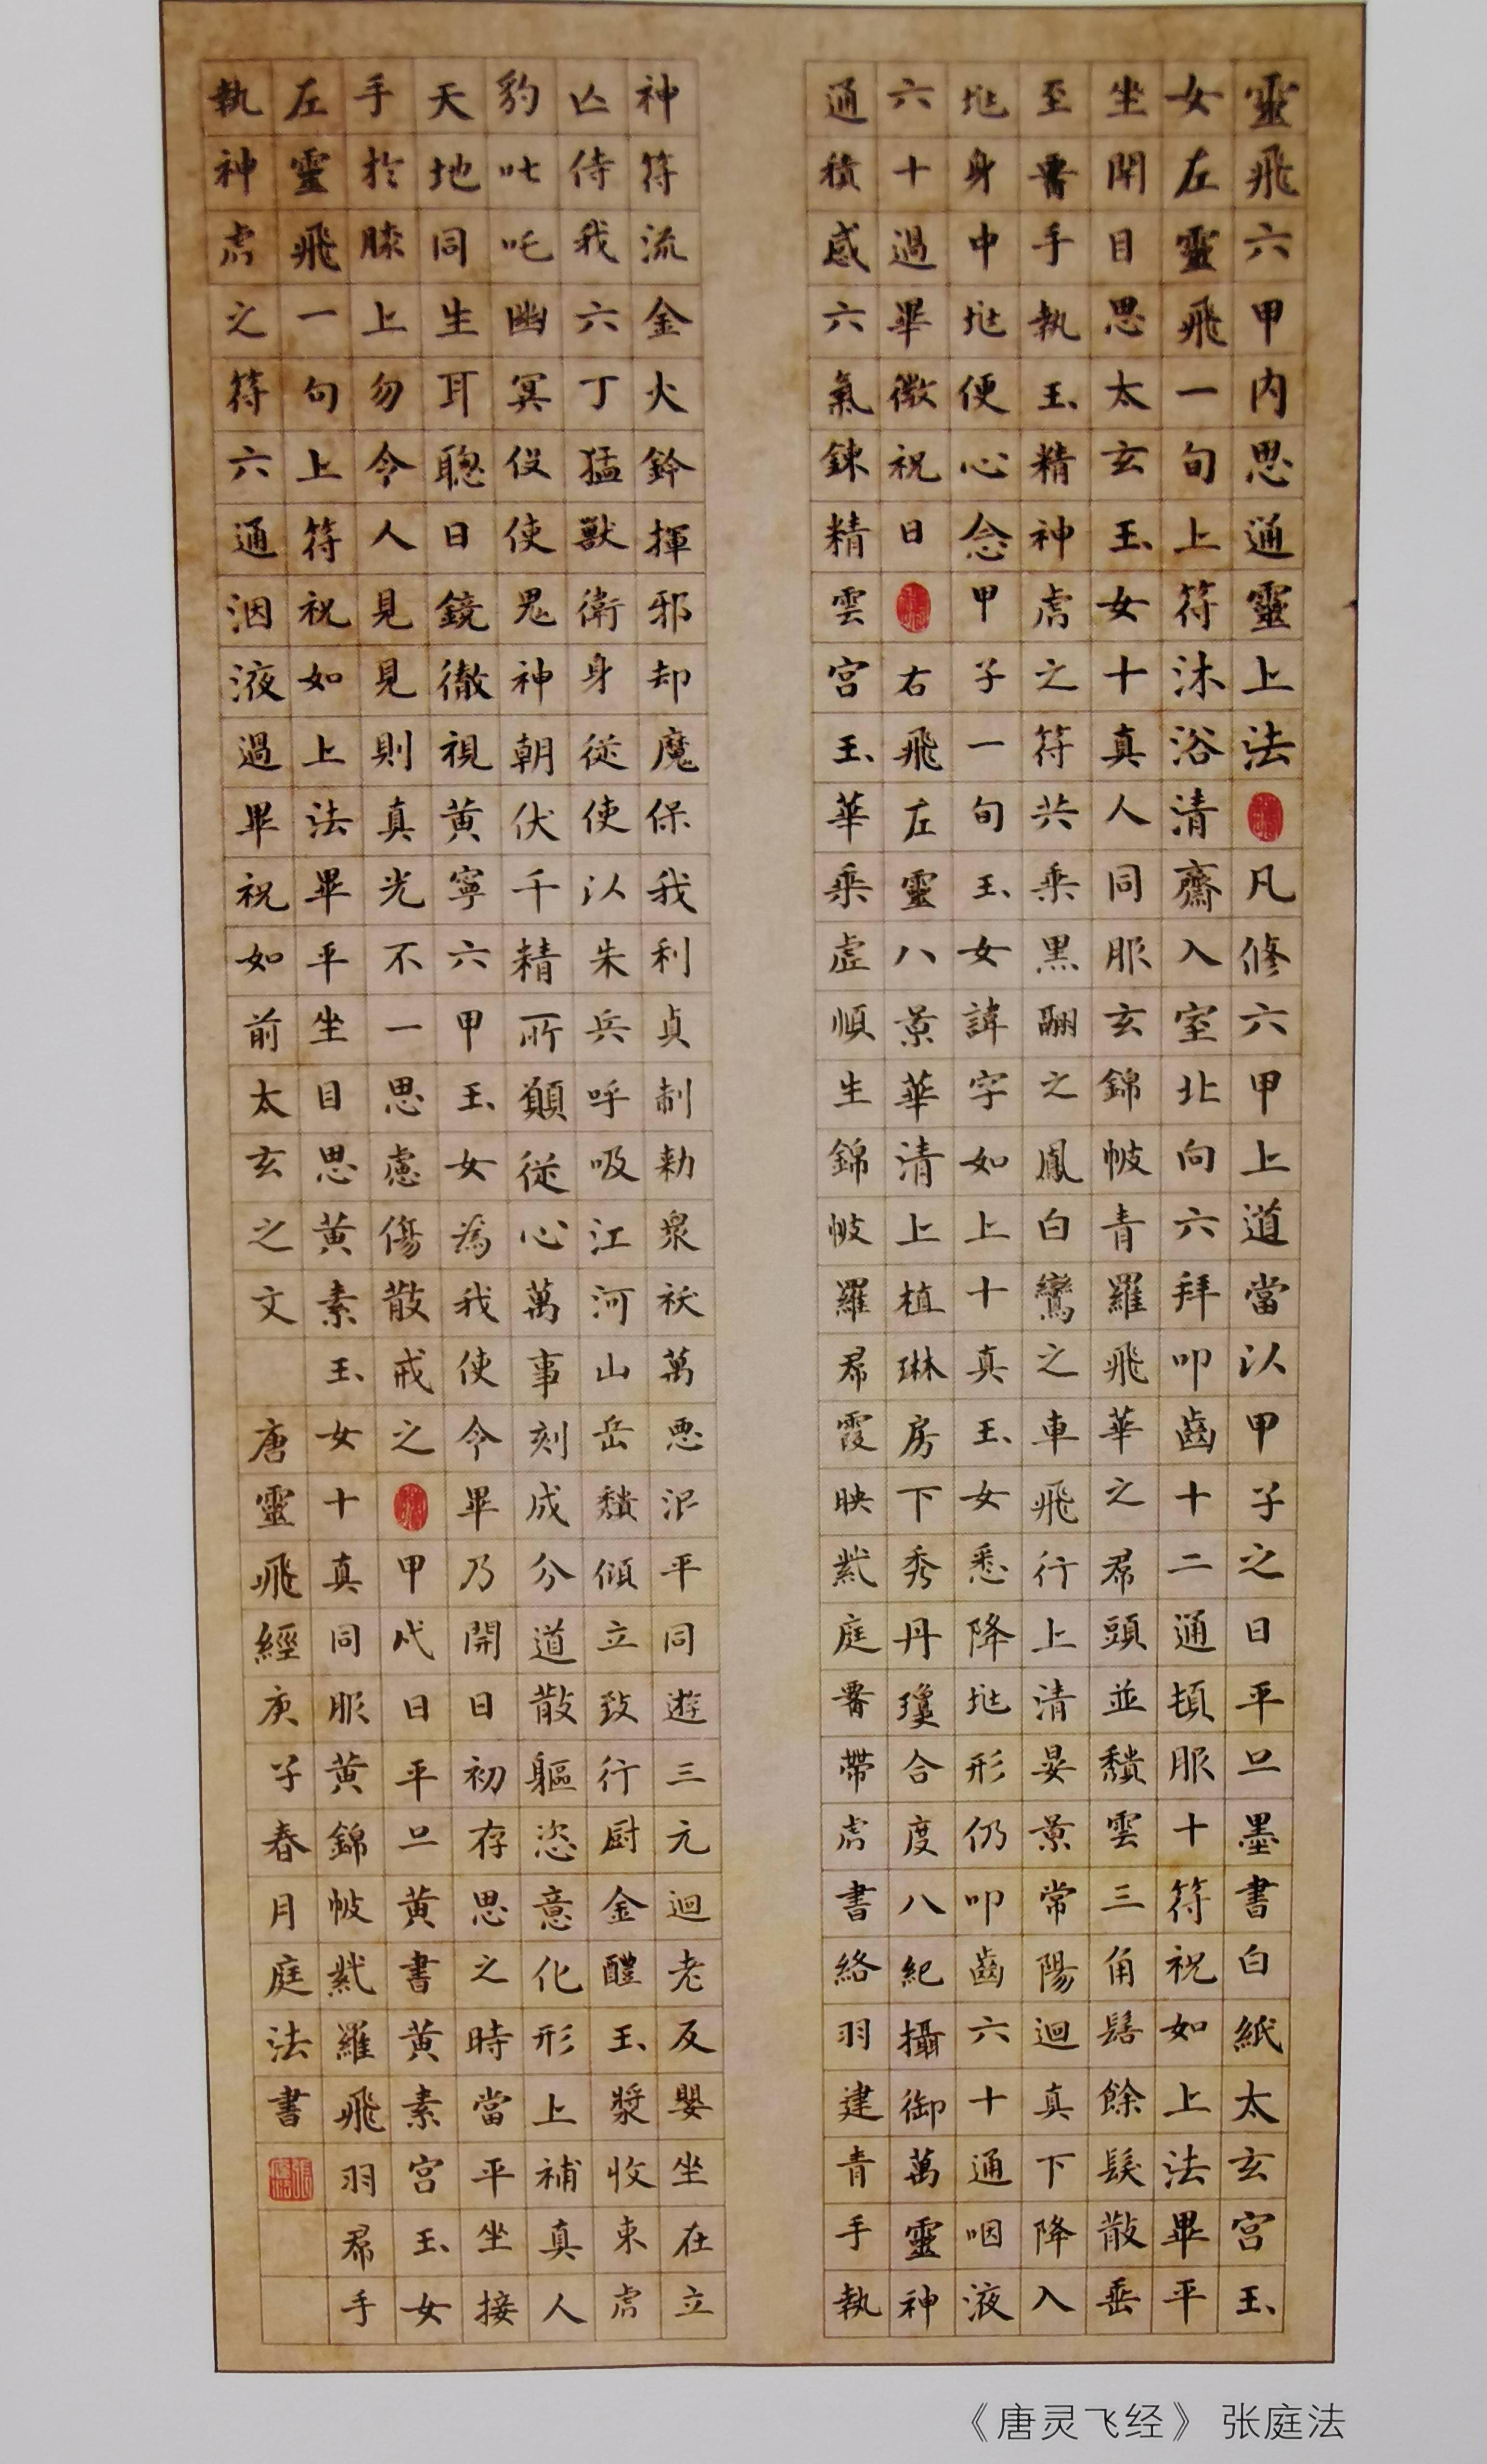 靈飛六甲内思通靈上法凡修六甲上道當以甲子之日平旦墨書白紙太玄宫玉
女左靈飛一旬上符沐浴清齋入室北向六拜叩齒十二通頓服十符祝如上法畢平
坐閉目思太玄玉女十真人同服玄錦帔青羅飛華之帬頭並頽雲三角髻餘髮散垂
至要手執玉精神虎之符共乘黑翮之鳳白鸞之車飛行上清晏景常陽迴真下降入
兆身中兆便心念甲子一旬玉女諱字如上十真玉女悉降兆形仍叩齒六十通咽液
六十過畢微祝曰右飛左靈八景華清上植琳房下秀丹瓊合度八紀攝御萬靈神
通積感六氣錬精雲宫玉華乘虛順生錦帔羅帬霞映紫庭要帶虎書絡羽建青手執
神符流金火鈴揮邪却魔保我利貞制勑衆袄萬惡泯平同遊三元迴老反嬰坐在立
亾侍我六丁猛獸衛身從使以朱兵呼吸江河山岳頽傾立致行厨金醴玉漿收束虎
豹叱吒幽冥役使鬼神朝伏千精所願從心萬事刻成分道散軀恣意化形上補真人
天地同生耳聰日鏡徹視黄寧六甲玉女為我使令畢乃開日初存思之時當平坐接
手於膝上勿令人見見則真光不一思慮傷散戒之甲戌日平旦黄書黄素宫玉女
左靈飛一旬上符祝如上法畢平坐目思黄素玉女十真同服黄錦帔紫羅飛羽帬手
執神虎之符六通洇液過畢祝如前太玄之文 唐靈飛經庚子春月庭法書
《唐灵飞经》张庭法